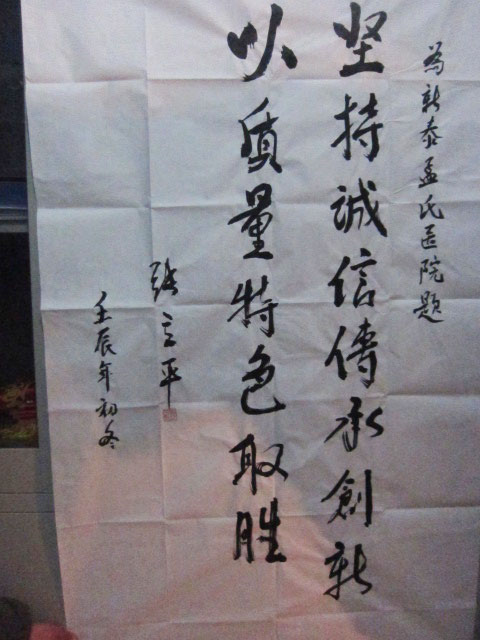 為新泰孟氏医院题
坚持誠信傳承創新
以质量特色取胜
張立平
壬辰年初冬